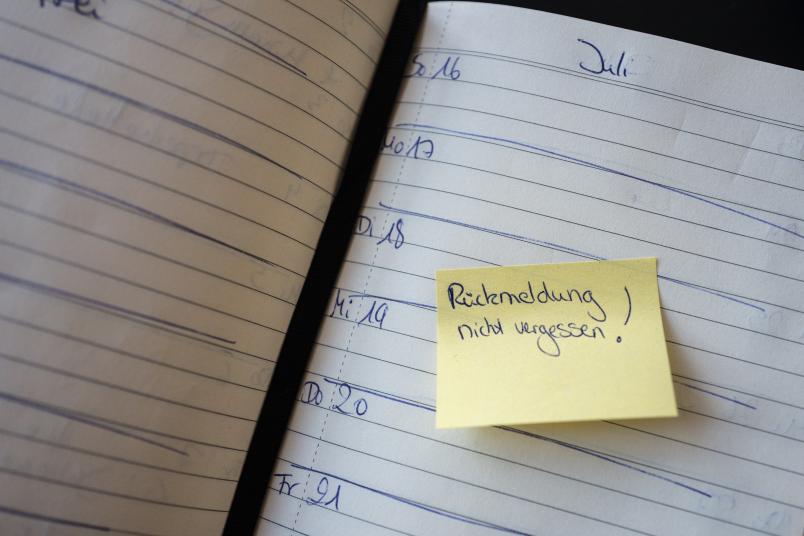 Juli
So 16
Mo 17
Di 18
Mi 19
Do 20
Fr 21
Rückmeldung
nicht vergessen!